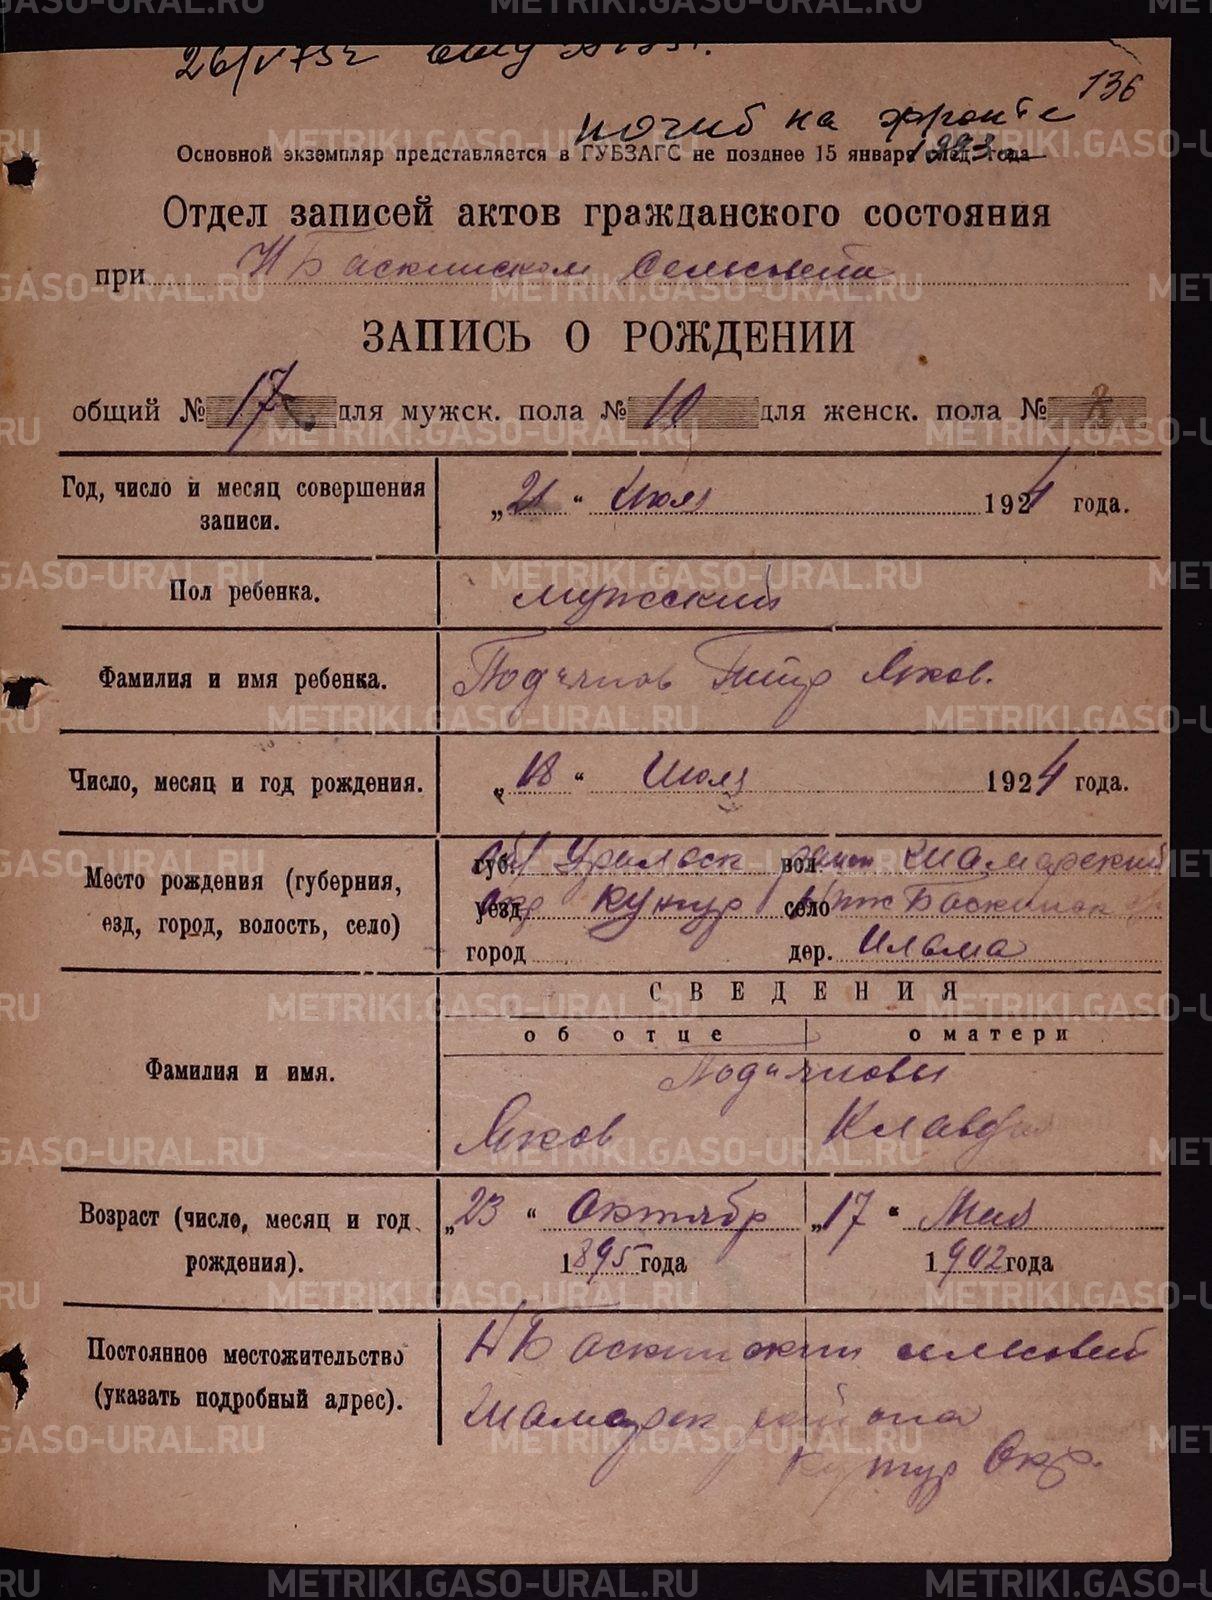 136
погиб на фронте
Основной экземпляр представляется в ГУБЗАГС не позднее 15 января след. года
Отдел записей актов гражданского состояния
при НБаскинском сельсовете
ЗАПИСЬ О РОЖДЕНИИ
общий № 17 для мужск. пола № 10 для женск. пола №
Год, число и месяц совершения записи. „21“ Июля 1924 года.
Пол ребенка. мужской
Фамилия и имя ребенка. Петр Яков.
Число, месяц и год рождения. „18“ Июля 1924 года.
Место рождения (губерния, губ. Уральск вол. Шамарский
езд, город, волость, село) уезд Кунгур село Баскинск
город дер. Ильма
СВЕДЕНИЯ
об отце о матери
Фамилия и имя.
Яков Клавдия
Возраст (число, месяц и год „23“ Октябр „17“ Мая
рождения). 1895 года 1902 года
Постоянное местожительство НБаскинский сельсовет
(указать подробный адрес). Шамарск района
Кунгур Окр.
METRIKI.GASO-URAL.RU